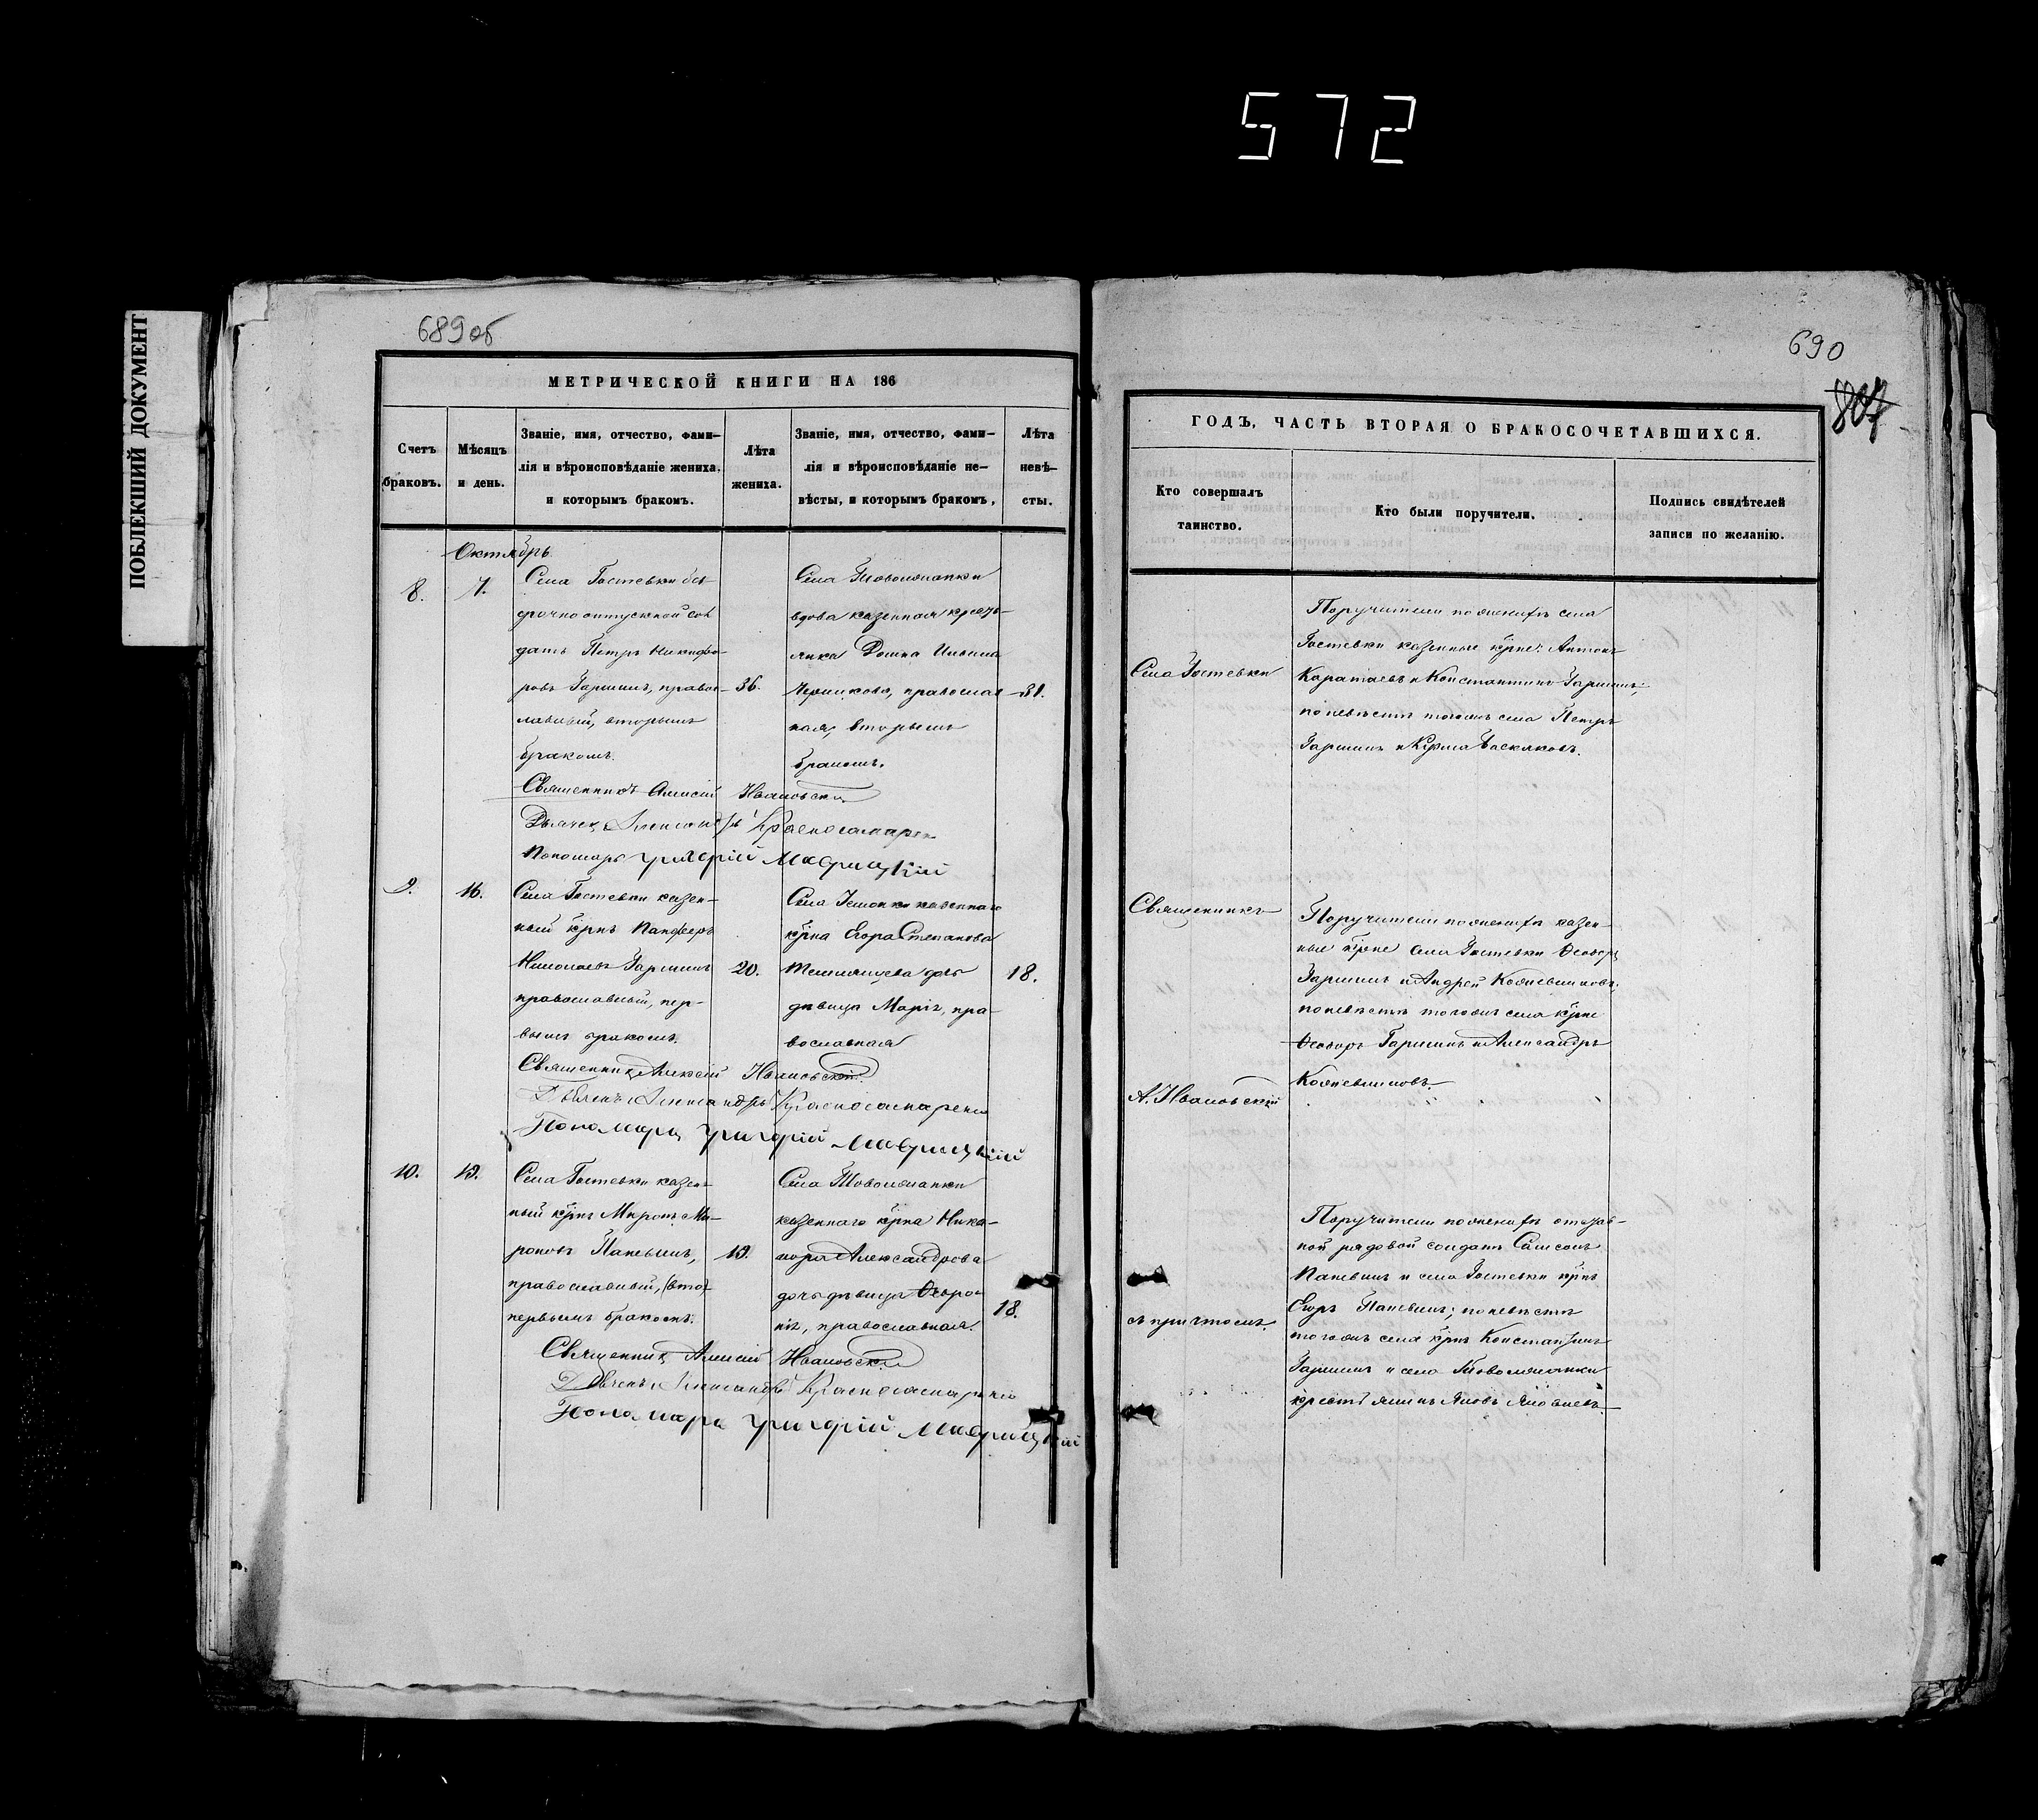 572
ПОБЛЕКШИЙ ДОКУМЕНТ
689 об
МЕТРИЧЕСКОЙ КНИГИ НА 186
Счетъ браковъ.
Мѣсяцъ и день.
Званіе, имя, отчество, фами-
лія и вѣроисповѣданіе жениха.
и которымъ бракомъ.
Лѣта жениха.
Званіе, имя, отчество, фами-
лія и вѣроисповѣданіе не-
вѣсты, и которымъ бракомъ,
Лѣта невѣ-
сты.
Октябрь
8.
7.
Села Гостевки безъ
срочноотпускной сол
датъ Петръ Никифо-
ровъ Гаршинъ, правос-
лавный, вторымъ
бракомъ.
36.
Села
вдова казенная кресть-
янка Домна
православ
ная, вторымъ
бракомъ.
31.
Священникъ Алексій Ивановскій
Дьячекъ Александръ
Пономарь Григорій Маврицкій
9.
16.
Села Гостевки казен-
ный крнъ Панферъ
Николаевъ Гаршинъ
православный, пер-
вымъ бракомъ.
20.
Села казеннаго
крна Егора Степанова
дочь
дѣвица Марія, пра-
вославная
18.
Священникъ Алексій Ивановскій
Дьячекъ Александръ
Пономарь Григорій Маврицкій
10.
19.
Села Гостевки казен-
ный крнъ Миронъ Ми-
роновъ Паневинъ,
православный, (вто)
первымъ бракомъ.
19.
Села
казеннаго крна Ника-
нора Александрова
дочь дѣвица Февро-
нія, православная.
18.
Священникъ Алексій Ивановскій
Дьячекъ Александръ
Пономарь Григорій Маврицкій
690
807
ГОДЪ, ЧАСТЬ ВТОРАЯ О БРАКОСОЧЕТАВШИХСЯ.
Кто совершалъ
таинство.
Кто были поручители.
Подпись свидѣтелей
записи по желанію.
Села Гостевки
Священникъ
А. Ивановскій
съ причтомъ.
Поручители по женихѣ села
Гостевки казенные крне Антонъ
Каратаевъ и Константинъ Гаршинъ;
по невѣстѣ тогожъ села Петръ
Гаршинъ и Васкаковъ.
Поручители по женихѣ казен-
ные крне села Гостевки Ѳеодоръ
Гаршинъ и Андрей Кожевниковъ,
по невѣстѣ тогожъ села крне
Ѳеодоръ Гаршинъ и Александръ
Кожевниковъ.
Поручители по женихѣ отстав-
ной рядовой солдатъ Самсонъ
Паневинъ и села Гостевки крнъ
Егоръ Паневинъ; по невѣстѣ
тогожъ села крнъ Константинъ
Гаршинъ и села
крестьянинъ Яковъ